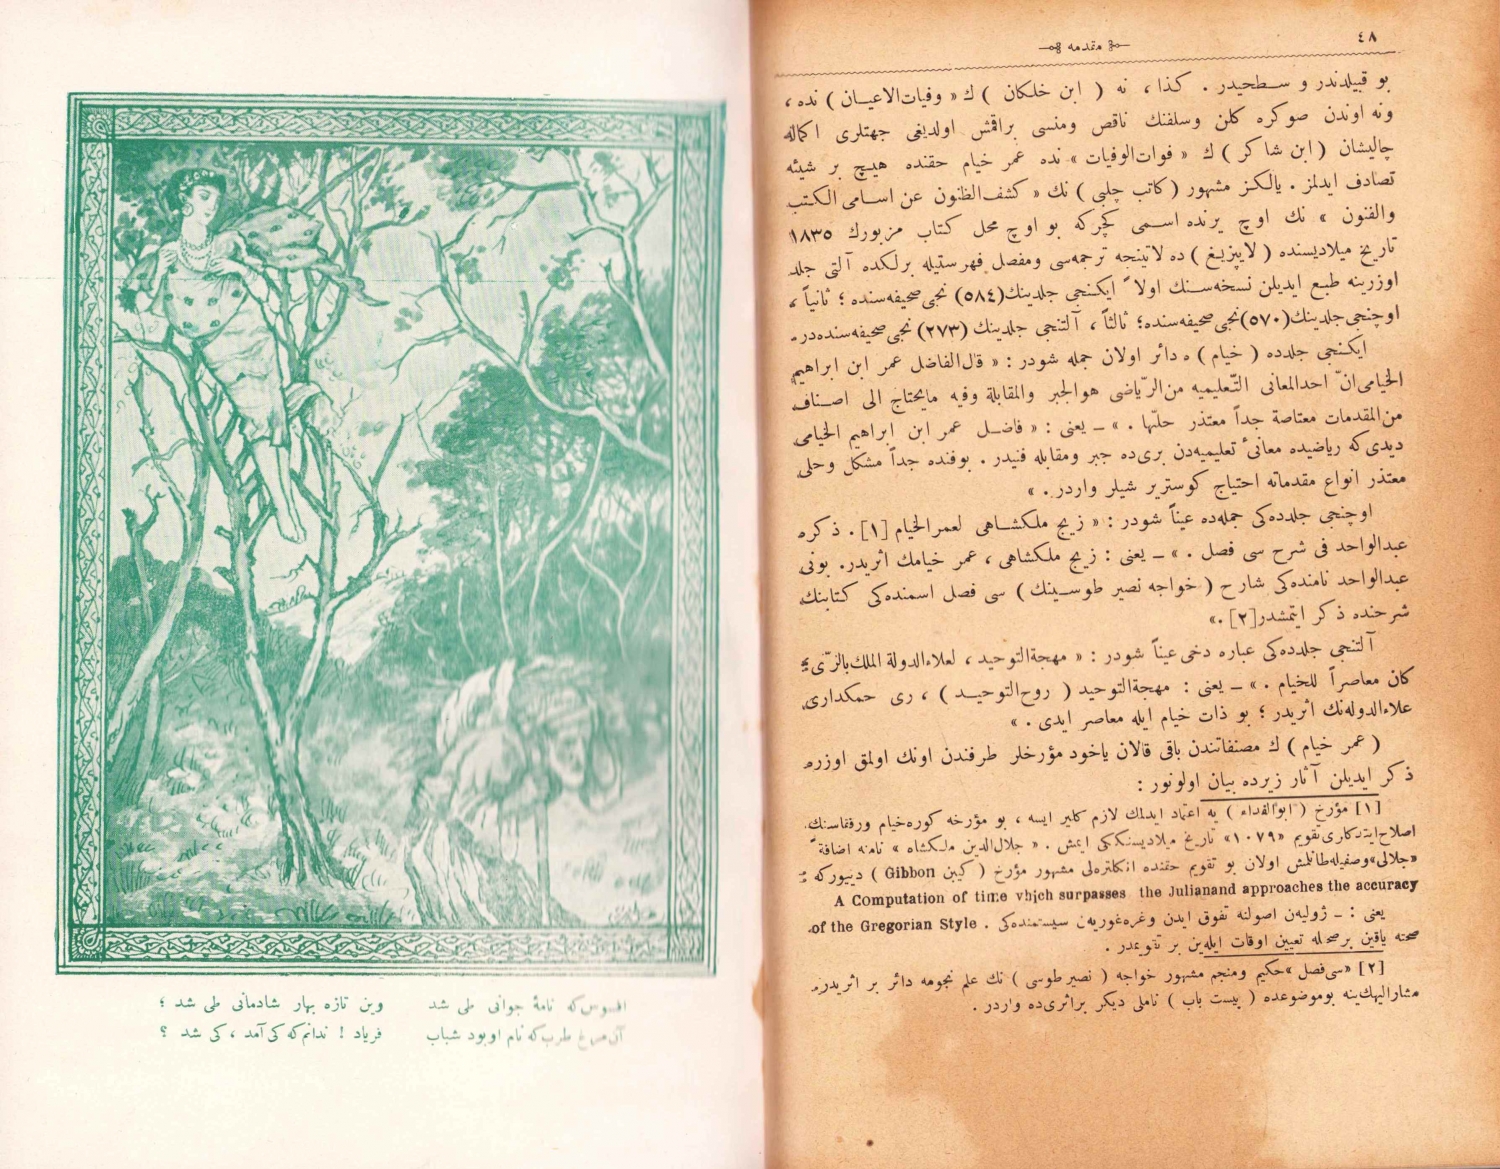 ٤٨
مقدمه
بو قبیلدندر و سـطحیدر . کذا ، نه ( ابن خلکان ) ك « وفیات‌الاعیـان » نده ،
ونه اوندن صوکره کلن وسلفنك ناقص ومنسی براقمش اولدیغی جهتلری اکماله
چالیشان ( ابن شاکر ) ك « فوات‌الوفیات » نده عمر خیام حقنده هیـچ بر شیئه
تصادف ایدلمز . یالکـز مشهور ( کاتب چلبی ) نك « کشف‌الظنون عن اسـامی الکتب
والفنون » نك اوچ یرنده اسـمی کچرکه بو اوچ محل کتاب مزبورك ١٨٣٥
تاریخ میلادیسنده ( لایپزیغ ) ده لاتینجه ترجمه‌سی ومفصل فهرستیله برلکده آلتی جلد
اوزرینه طبع ایدیلن نسخه‌سنك اولاً ایکنجی جلدینك (٥٨٤) نجی صحیفه‌سنده ؛ ثانیاً ،
اوچنجی جلدینك (٥٧٠) نجی صحیفه‌سنده؛ ثالثاً ، آلتنجی جلدینك (٢٧٣) نجی صحیفه‌سنده‌در.
ایکنجی جلدده ( خیام ) ه دائر اولان جمله شودر : « قال‌الفاضل عمر ابن ابراهیم
الخیامی‌انّ احدالمعانی التّعلیمیه من‌الرّیاضی هوالجبر والمقابلة وفیه مایحتاج الی اصـناف
من‌المقدمات معتاصة جداً معتذر حلّها . » ـ یعنی : « فاضـل عمر ابن ابراهیم الخیامی
دیدی‌که ریاضیده معانیٔ تعلیمیه‌دن بری‌ده جبر ومقابله فنیدر . بوفنده جداً مشکل وحلی
معتذر انواع مقدماته احتیاج کوستریر شیلر واردر . »
اوچنجی جلدده‌کی جمله‌ده عیناً شودر : « زیج ملکشـاهی لعمرالخیام [١] . ذکره
عبدالواحد فی شرح سی فصل . » ـ یعنی : زیج ملکشاهی ، عمر خیامك اثریدر. بونی
عبدالواحد نامنده‌کی شارح ( خواجه نصیر طوسـینك ) سی فصل اسمنده‌کی کتابنك
شرحنده ذکر ایتمشدر[٢].»
آلتنجی جلدده‌کی عباره دخی عیناً شودر : « مهجة‌التوحید ، لعلاءالدولة الملك‌بالرّی
کان معاصراً للخیام . » ـ یعنی : مهجة‌التوحید ( روح‌التوحیـد ) ، ری حکمداری
علاءالدوله‌نك اثریدر ؛ بو ذات خیام ایله معاصر ایدی . »
( عمر خیام ) ك مصنفاتندن باقی قالان یاخود مؤرخلر طرفندن اونك اولمق اوزره
ذکر ایدیلن آثار زیرده بیان اولونور :
[١] مؤرخ ( ابوالفداء ) یه اعتماد ایدلمك لازم کلیر ایسه ، بو مؤرخه کوره‌خیام ورفقاسنك
اصلاح‌ایتدکاری‌تقویم «١٠٧٩» تاریخ میلادیسنکی ایمش . « جلال‌الدین ملکشاه » نامنه اضافةً
«جلالی»وصفیله‌طانلمش اولان بو تقویم حقنده انکلتره‌لی مشهور مؤرخ ( کیبن Gibbon ) دییورکه :
A Computation of time vhich surpasses the Julianand approaches the accuracy
of the Gregorian Style .
یعنی : ـ ژولیه‌ن اصولنه تفوق ایدن وغره‌غوریه‌ن سیستمنده‌کی
صحته یاقین برصحتله تعیین اوقات ایله‌ین بر تقویمدر .
[٢] «سی‌فصل» حکیم ومنجم مشهور خواجه ( نصیر طوسی ) نك علم نجومه دائر بر اثریدر.
مشارالیهك‌ینه بوموضوعده ( بیست باب ) ناملی دیکر براثری‌ده واردر .
افسوس که نامهٔ جوانی طی شد وین تازه بهار شادمانی طی شد ؛
آن مرغ طرب که نام اوبود شباب فریاد ! ندانم که کی آمد ، کی شد ؟